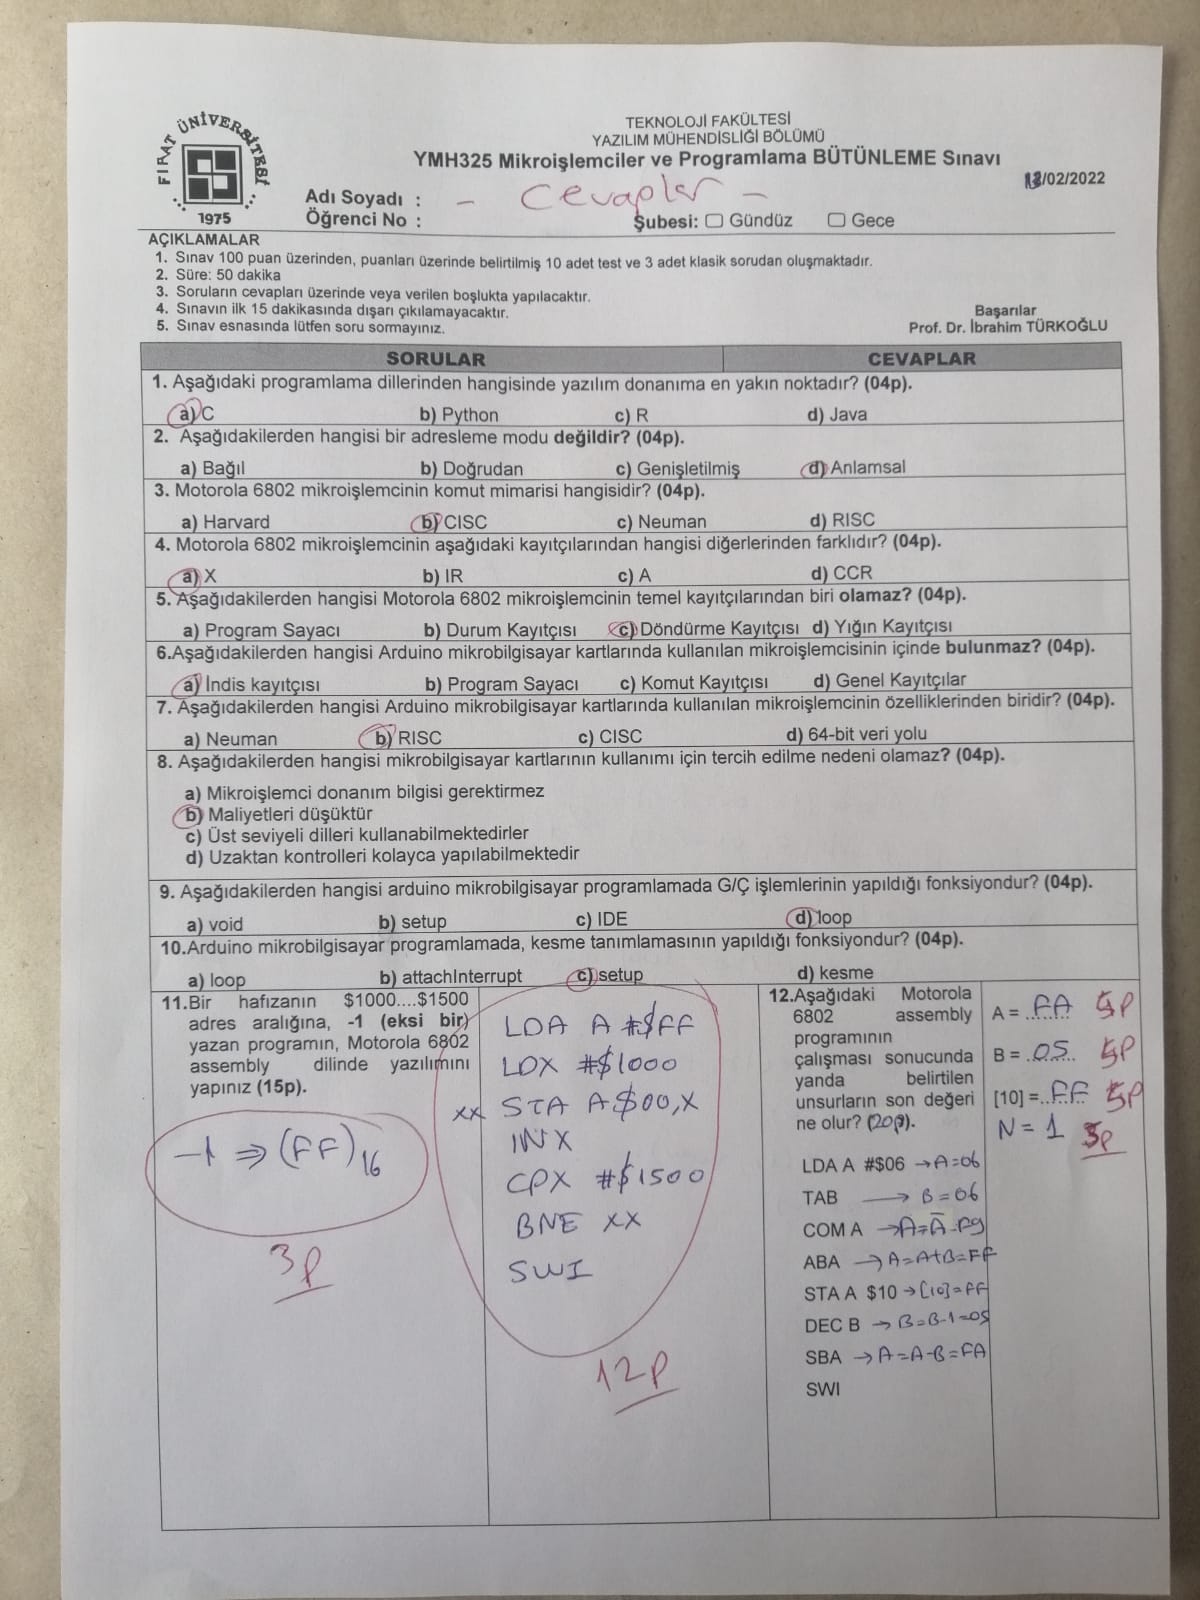 FIRAT ÜNİVERSİTESİ
1975
TEKNOLOJİ FAKÜLTESİ
YAZILIM MÜHENDİSLİĞİ BÖLÜMÜ
YMH325 Mikroişlemciler ve Programlama BÜTÜNLEME Sınavı
18/02/2022
Adı Soyadı : - Cevaplar -
Öğrenci No :
Şubesi: Gündüz Gece
AÇIKLAMALAR
1. Sınav 100 puan üzerinden, puanları üzerinde belirtilmiş 10 adet test ve 3 adet klasik sorudan oluşmaktadır.
2. Süre: 50 dakika
3. Soruların cevapları üzerinde veya verilen boşlukta yapılacaktır.
4. Sınavın ilk 15 dakikasında dışarı çıkılamayacaktır.
5. Sınav esnasında lütfen soru sormayınız.
Başarılar
Prof. Dr. İbrahim TÜRKOĞLU
SORULAR CEVAPLAR
1. Aşağıdaki programlama dillerinden hangisinde yazılım donanıma en yakın noktadır? (04p).
a) C b) Python c) R d) Java
2. Aşağıdakilerden hangisi bir adresleme modu değildir? (04p).
a) Bağıl b) Doğrudan c) Genişletilmiş d) Anlamsal
3. Motorola 6802 mikroişlemcinin komut mimarisi hangisidir? (04p).
a) Harvard b) CISC c) Neuman d) RISC
4. Motorola 6802 mikroişlemcinin aşağıdaki kayıtçılarından hangisi diğerlerinden farklıdır? (04p).
a) X b) IR c) A d) CCR
5. Aşağıdakilerden hangisi Motorola 6802 mikroişlemcinin temel kayıtçılarından biri olamaz? (04p).
a) Program Sayacı b) Durum Kayıtçısı c) Döndürme Kayıtçısı d) Yığın Kayıtçısı
6.Aşağıdakilerden hangisi Arduino mikrobilgisayar kartlarında kullanılan mikroişlemcisinin içinde bulunmaz? (04p).
a) İndis kayıtçısı b) Program Sayacı c) Komut Kayıtçısı d) Genel Kayıtçılar
7. Aşağıdakilerden hangisi Arduino mikrobilgisayar kartlarında kullanılan mikroişlemcinin özelliklerinden biridir? (04p).
a) Neuman b) RISC c) CISC d) 64-bit veri yolu
8. Aşağıdakilerden hangisi mikrobilgisayar kartlarının kullanımı için tercih edilme nedeni olamaz? (04p).
a) Mikroişlemci donanım bilgisi gerektirmez
b) Maliyetleri düşüktür
c) Üst seviyeli dilleri kullanabilmektedirler
d) Uzaktan kontrolleri kolayca yapılabilmektedir
9. Aşağıdakilerden hangisi arduino mikrobilgisayar programlamada G/Ç işlemlerinin yapıldığı fonksiyondur? (04p).
a) void b) setup c) IDE d) loop
10.Arduino mikrobilgisayar programlamada, kesme tanımlamasının yapıldığı fonksiyondur? (04p).
a) loop b) attachInterrupt c) setup d) kesme
11.Bir hafızanın $1000....$1500
adres aralığına, -1 (eksi bir)
yazan programın, Motorola 6802
assembly dilinde yazılımını
yapınız (15p).
-1 ⇒ (FF)16
3p
LDA A #$FF
LDX #$1000
xx STA A $00,X
INX
CPX #$1500
BNE xx
SWI
12p
12.Aşağıdaki Motorola
6802 assembly
programının
çalışması sonucunda
yanda belirtilen
unsurların son değeri
ne olur? (20p).
LDA A #$06 → A=06
TAB → B=06
COM A → A=Ā=F9
ABA → A=A+B=FF
STA A $10 → [10]=FF
DEC B → B=B-1=05
SBA → A=A-B=FA
SWI
A = ..FA.. 5p
B = ..05.. 5p
[10] =..FF.. 5p
N = 1 5p